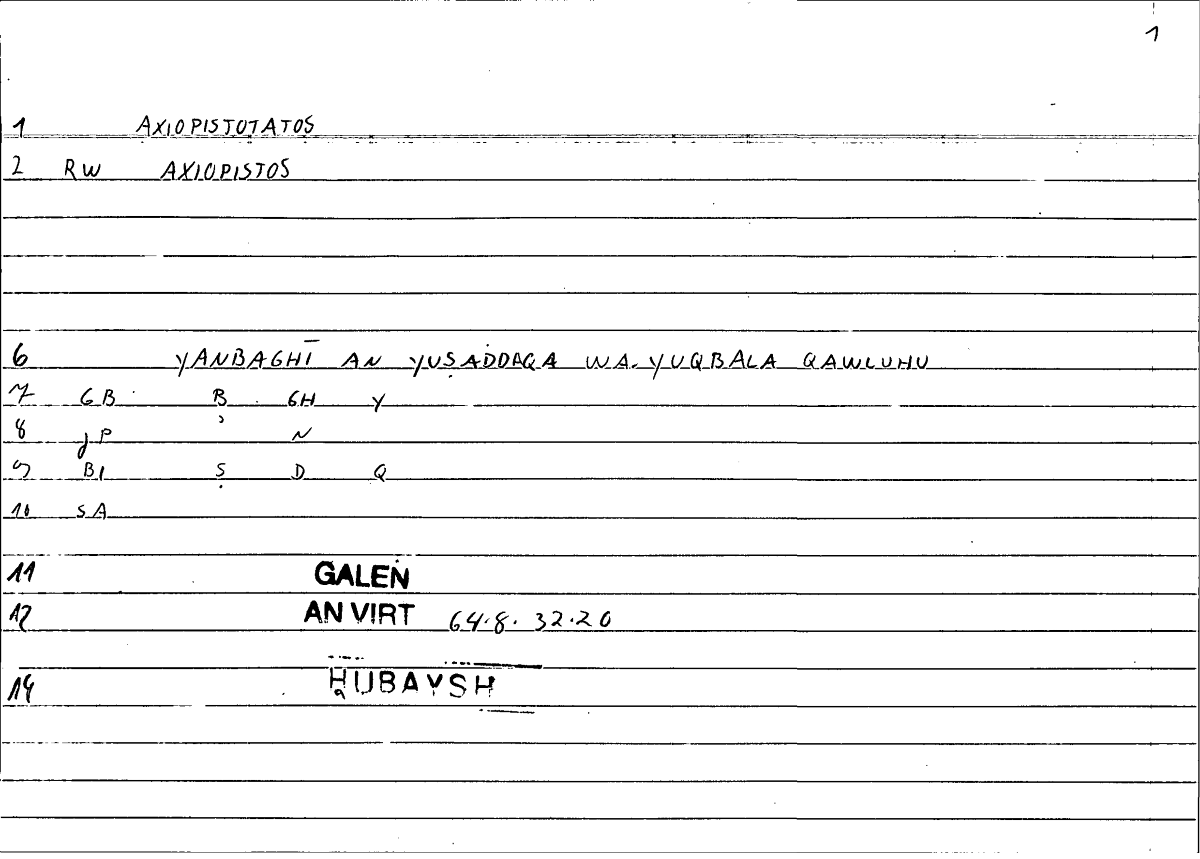 1
1 AXIOPISTOTATOS
2 RW AXIOPISTOS
6 YANBAGHĪ AN YUṢADDAQA WA-YUQBALA QAWLUHU
7 GB B GH Y
8 JP ʾ N
9 BI Ṣ D Q
10 SA
11 GALEN
12 AN VIRT 64.8. 32.20
14 ḤUBAYSH